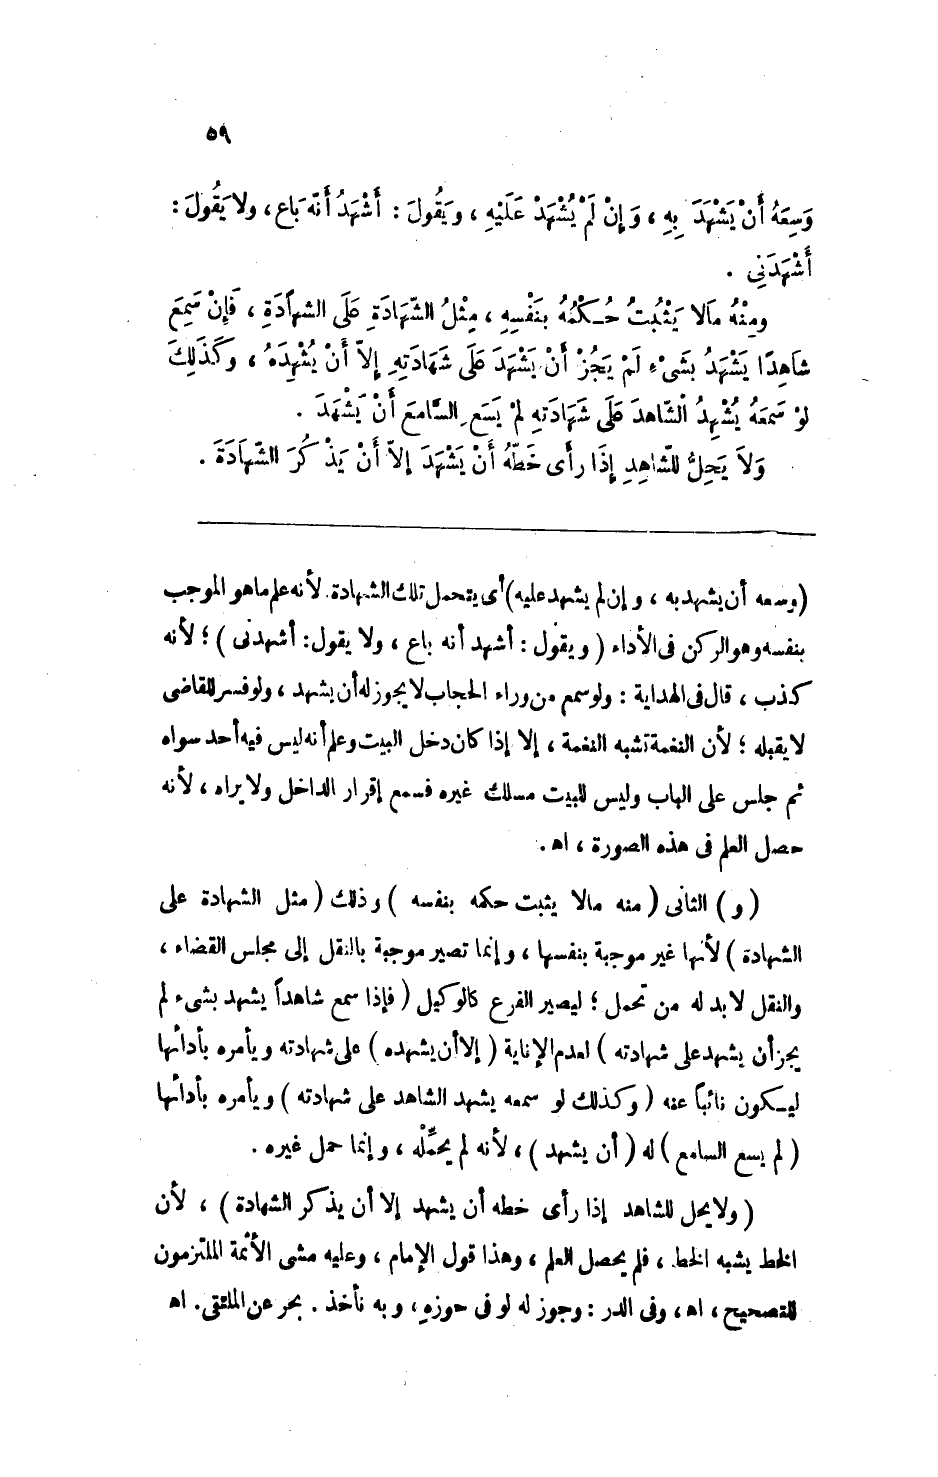 ٥٩
وَسِعَهُ أَنْ يَشْهَدَ بِهِ ، وَإِنْ لَمْ يُشْهَدْ عَلَيْهِ ، وَيَقُولَ : أَشْهَدُ أَنَّهُ بَاعَ ، ولا يَقُولَ :
أَشْهَدَنِي .
ومِنْهُ مَالا يَثْبُتُ حُكْمُهُ بِنَفْسِهِ ، مِثْلُ الشَّهَادَةِ عَلَى الشهادَةِ ، فَإِنْ سَمِعَ
شاهِدًا يَشْهَدُ بشَىْءٍ لَمْ يَجُزْ أَنْ يَشْهَدَ عَلَى شَهَادَتِهِ إِلاَّ أَنْ يُشْهِدَهُ ، وَكَذَلِكَ
لوْ سَمِعَهُ يُشْهِدُ الشَّاهِدَ عَلَى شَهَادَتِهِ لمْ يَسَعِ السَّامِعَ أَنْ يَشْهَدَ .
وَلاَ يَحِلُّ لِلشَّاهِدِ إِذَا رأَى خَطَّهُ أَنْ يَشْهَدَ إلاَّ أَنْ يَذْكُرَ الشَّهَادَةَ .
(وسعه أن يشهد به ، وإن لم يشهد عليه) أى يتحمل تلك الشهادة. لأنه علم ما هو الموجب
بنفسه وهو الركن فى الأداء ( ويقول : أشهد أنه باع ، ولا يقول : أشهدنى ) ؛ لأنه
كذب ، قال فى الهداية : ولو سمع من وراء الحجاب لا يجوز له أن يشهد ، ولو فسر للقاضى
لا يقبله ؛ لأن النغمة تشبه النغمة ، إلا إذا كان دخل البيت وعلم أنه ليس فيه أحد سواه
ثم جلس على الباب وليس للبيت مسلك غيره فسمع إقرار الداخل ولا يراه ، لأنه
حصل العلم فى هذه الصورة ، اه .
( و ) الثانى ( منه مالا يثبت حكمه بنفسه ) وذلك ( مثل الشهادة على
الشهادة ) لأنها غير موجبة بنفسها ، وإنما تصير موجبة بالنقل إلى مجلس القضاء ،
والنقل لا بد له من تحمل ؛ ليصير الفرع كالوكيل ( فإذا سمع شاهداً يشهد بشىء لم
يجز أن يشهد على شهادته ) لعدم الإنابة ( إلا أن يشهده ) على شهادته ويأمره بأدائها
ليكون نائباً عنه ( وكذلك لو سمعه يشهد الشاهد على شهادته ) ويأمره بأدائها
( لم يسع السامع ) له ( أن يشهد ) ، لأنه لم يحمِّلْه ، وإنما حمل غيره .
( ولا يحل للشاهد إذا رأى خطه أن يشهد إلا أن يذكر الشهادة ) ، لأن
الخط يشبه الخط ، فلم يحصل العلم ، وهذا قول الإمام ، وعليه مشى الأئمة الملتزمون
للتصحيح ، اه ، وفى الدر : وجوز له لو فى حوزه ، وبه نأخذ . بحر عن الملتقى. اه